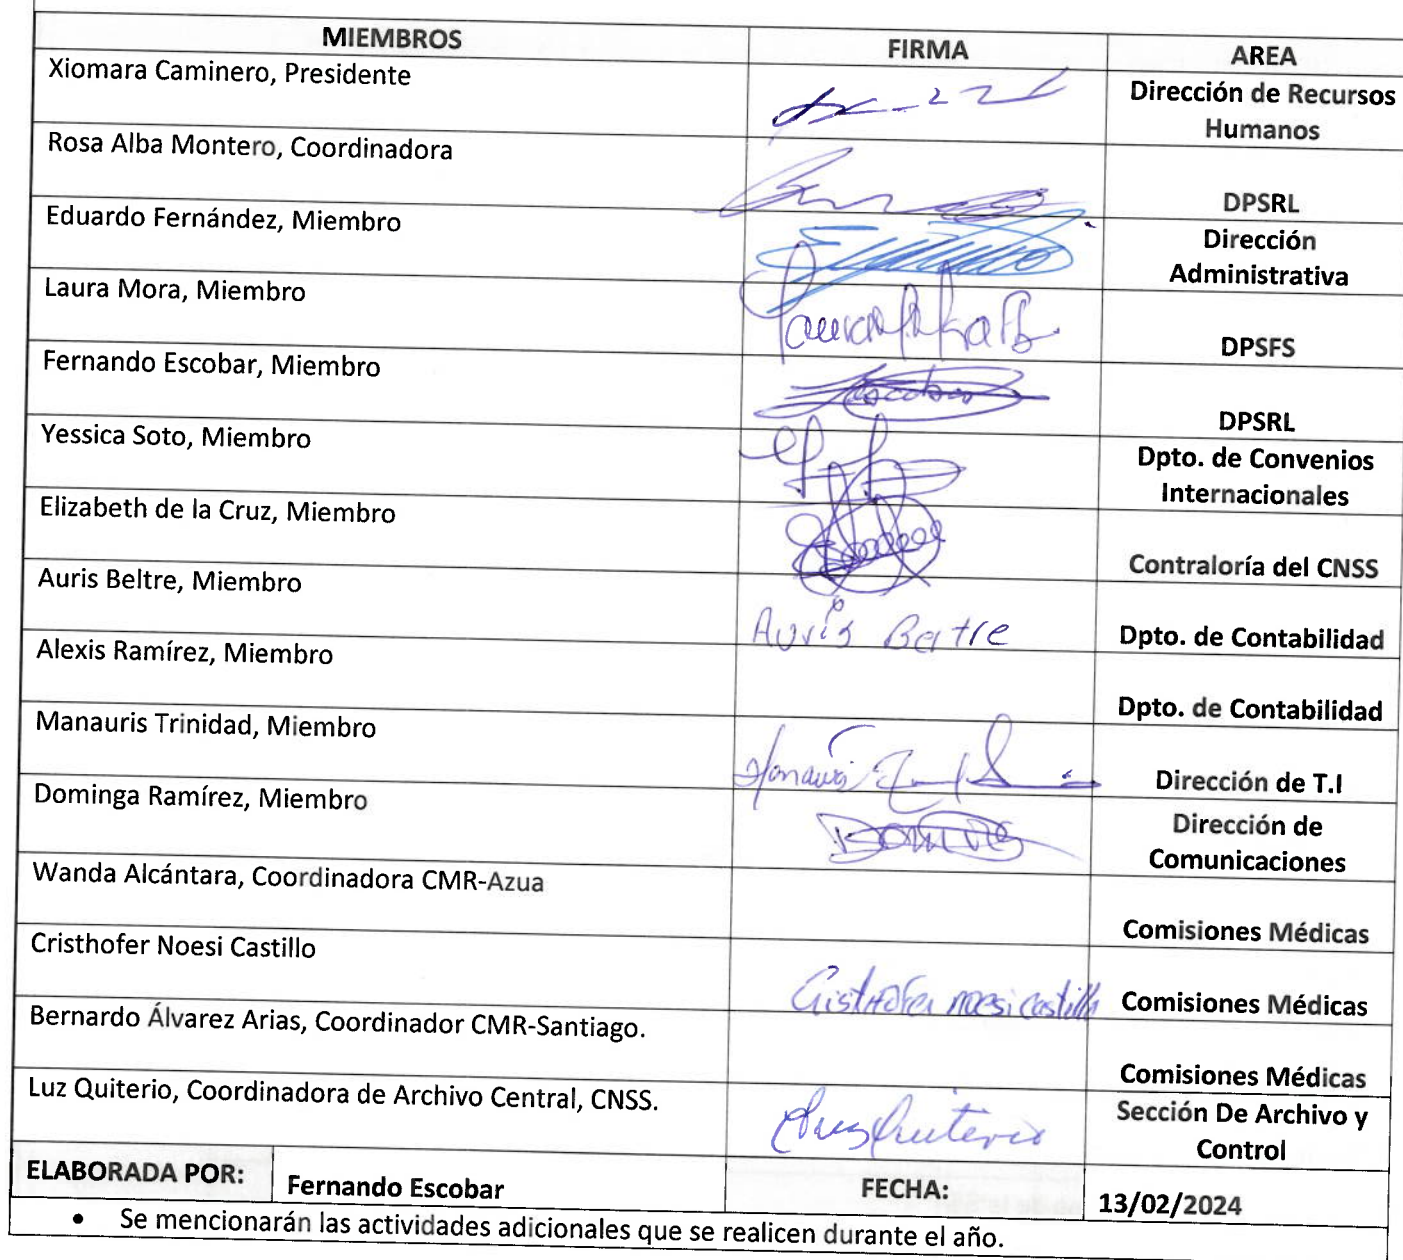 MIEMBROS FIRMA AREA
Xiomara Caminero, Presidente Dirección de Recursos
Humanos
Rosa Alba Montero, Coordinadora DPSRL
Eduardo Fernández, Miembro Dirección
Administrativa
Laura Mora, Miembro DPSFS
Fernando Escobar, Miembro Escobar DPSRL
Yessica Soto, Miembro Dpto. de Convenios
Internacionales
Elizabeth de la Cruz, Miembro Contraloría del CNSS
Auris Beltre, Miembro Auris Beltre Dpto. de Contabilidad
Alexis Ramírez, Miembro Dpto. de Contabilidad
Manauris Trinidad, Miembro Dirección de T.I
Dominga Ramírez, Miembro Dirección de
Comunicaciones
Wanda Alcántara, Coordinadora CMR-Azua Comisiones Médicas
Cristhofer Noesi Castillo Cristhofer noesi castillo Comisiones Médicas
Bernardo Álvarez Arias, Coordinador CMR-Santiago. Comisiones Médicas
Luz Quiterio, Coordinadora de Archivo Central, CNSS. Luz Quiterio Sección De Archivo y
Control
ELABORADA POR: Fernando Escobar FECHA: 13/02/2024
• Se mencionarán las actividades adicionales que se realicen durante el año.